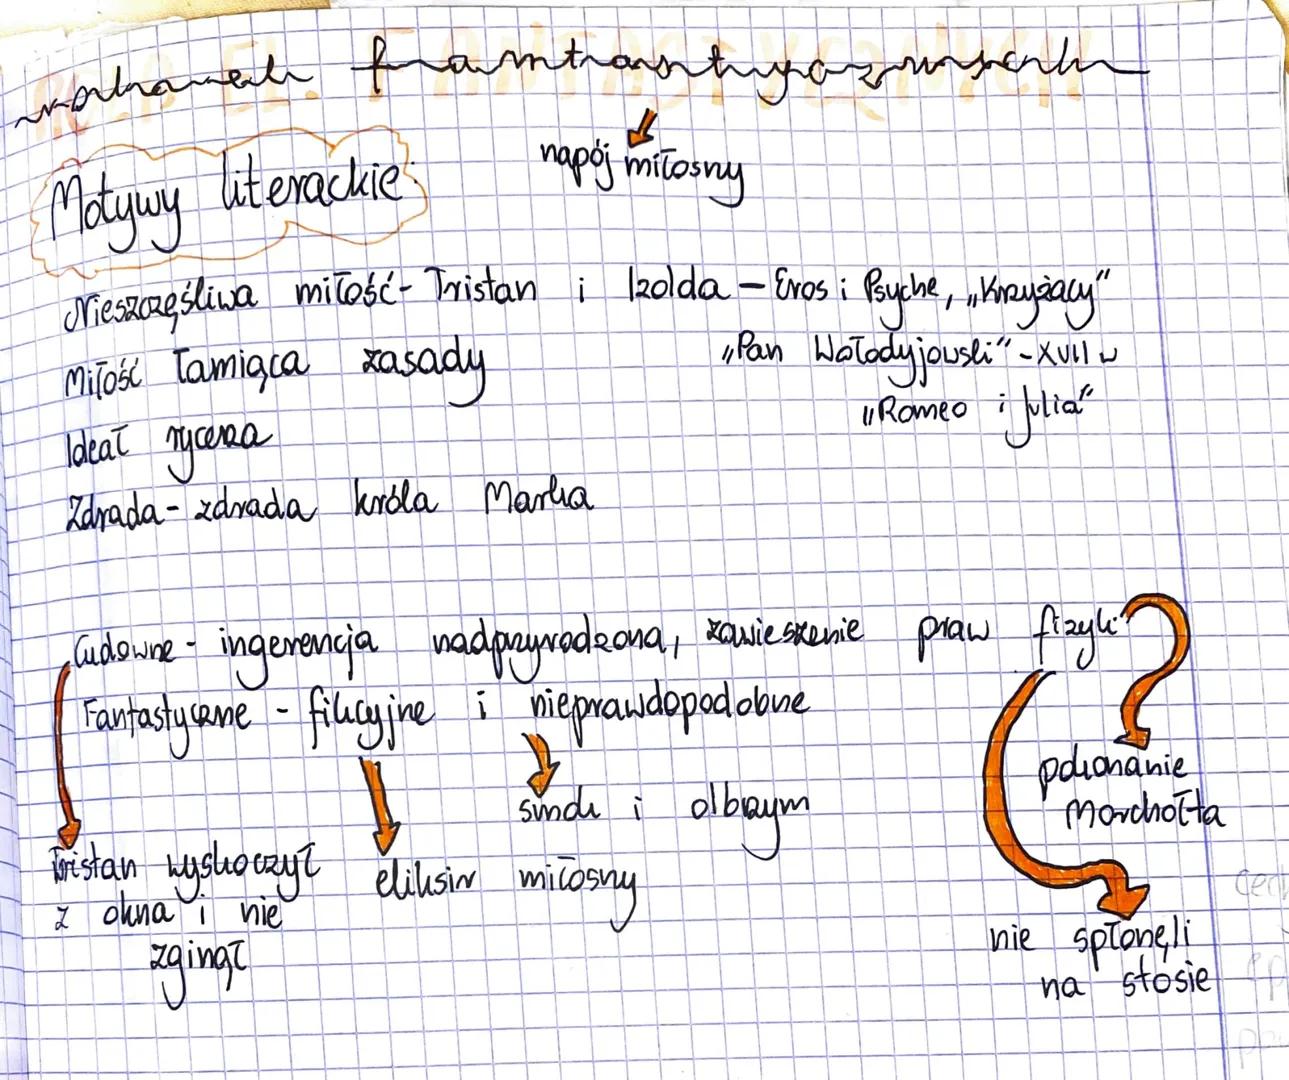 fantastycznych
napój miłosny
Motywy literackie:
Nieszczęśliwa miłość - Tristan i Izolda - Eros i Psyche, „Krzyżacy"
Miłość łamiąca zasady „Pan Wołodyjowski" - XVII w
„Romeo i Julia"
Ideał rycerza
Zdrada - zdrada króla Marka
Cudowne - ingerencja nadprzyrodzona, zawieszenie praw fizyki
Fantastyczne - fikcyjne i nieprawdopodobne
pokonanie
Morchołta
smok i olbrzym
Tristan wyskoczył
z okna i nie
zginął
eliksir miłosny
nie spłonęli
na stosie